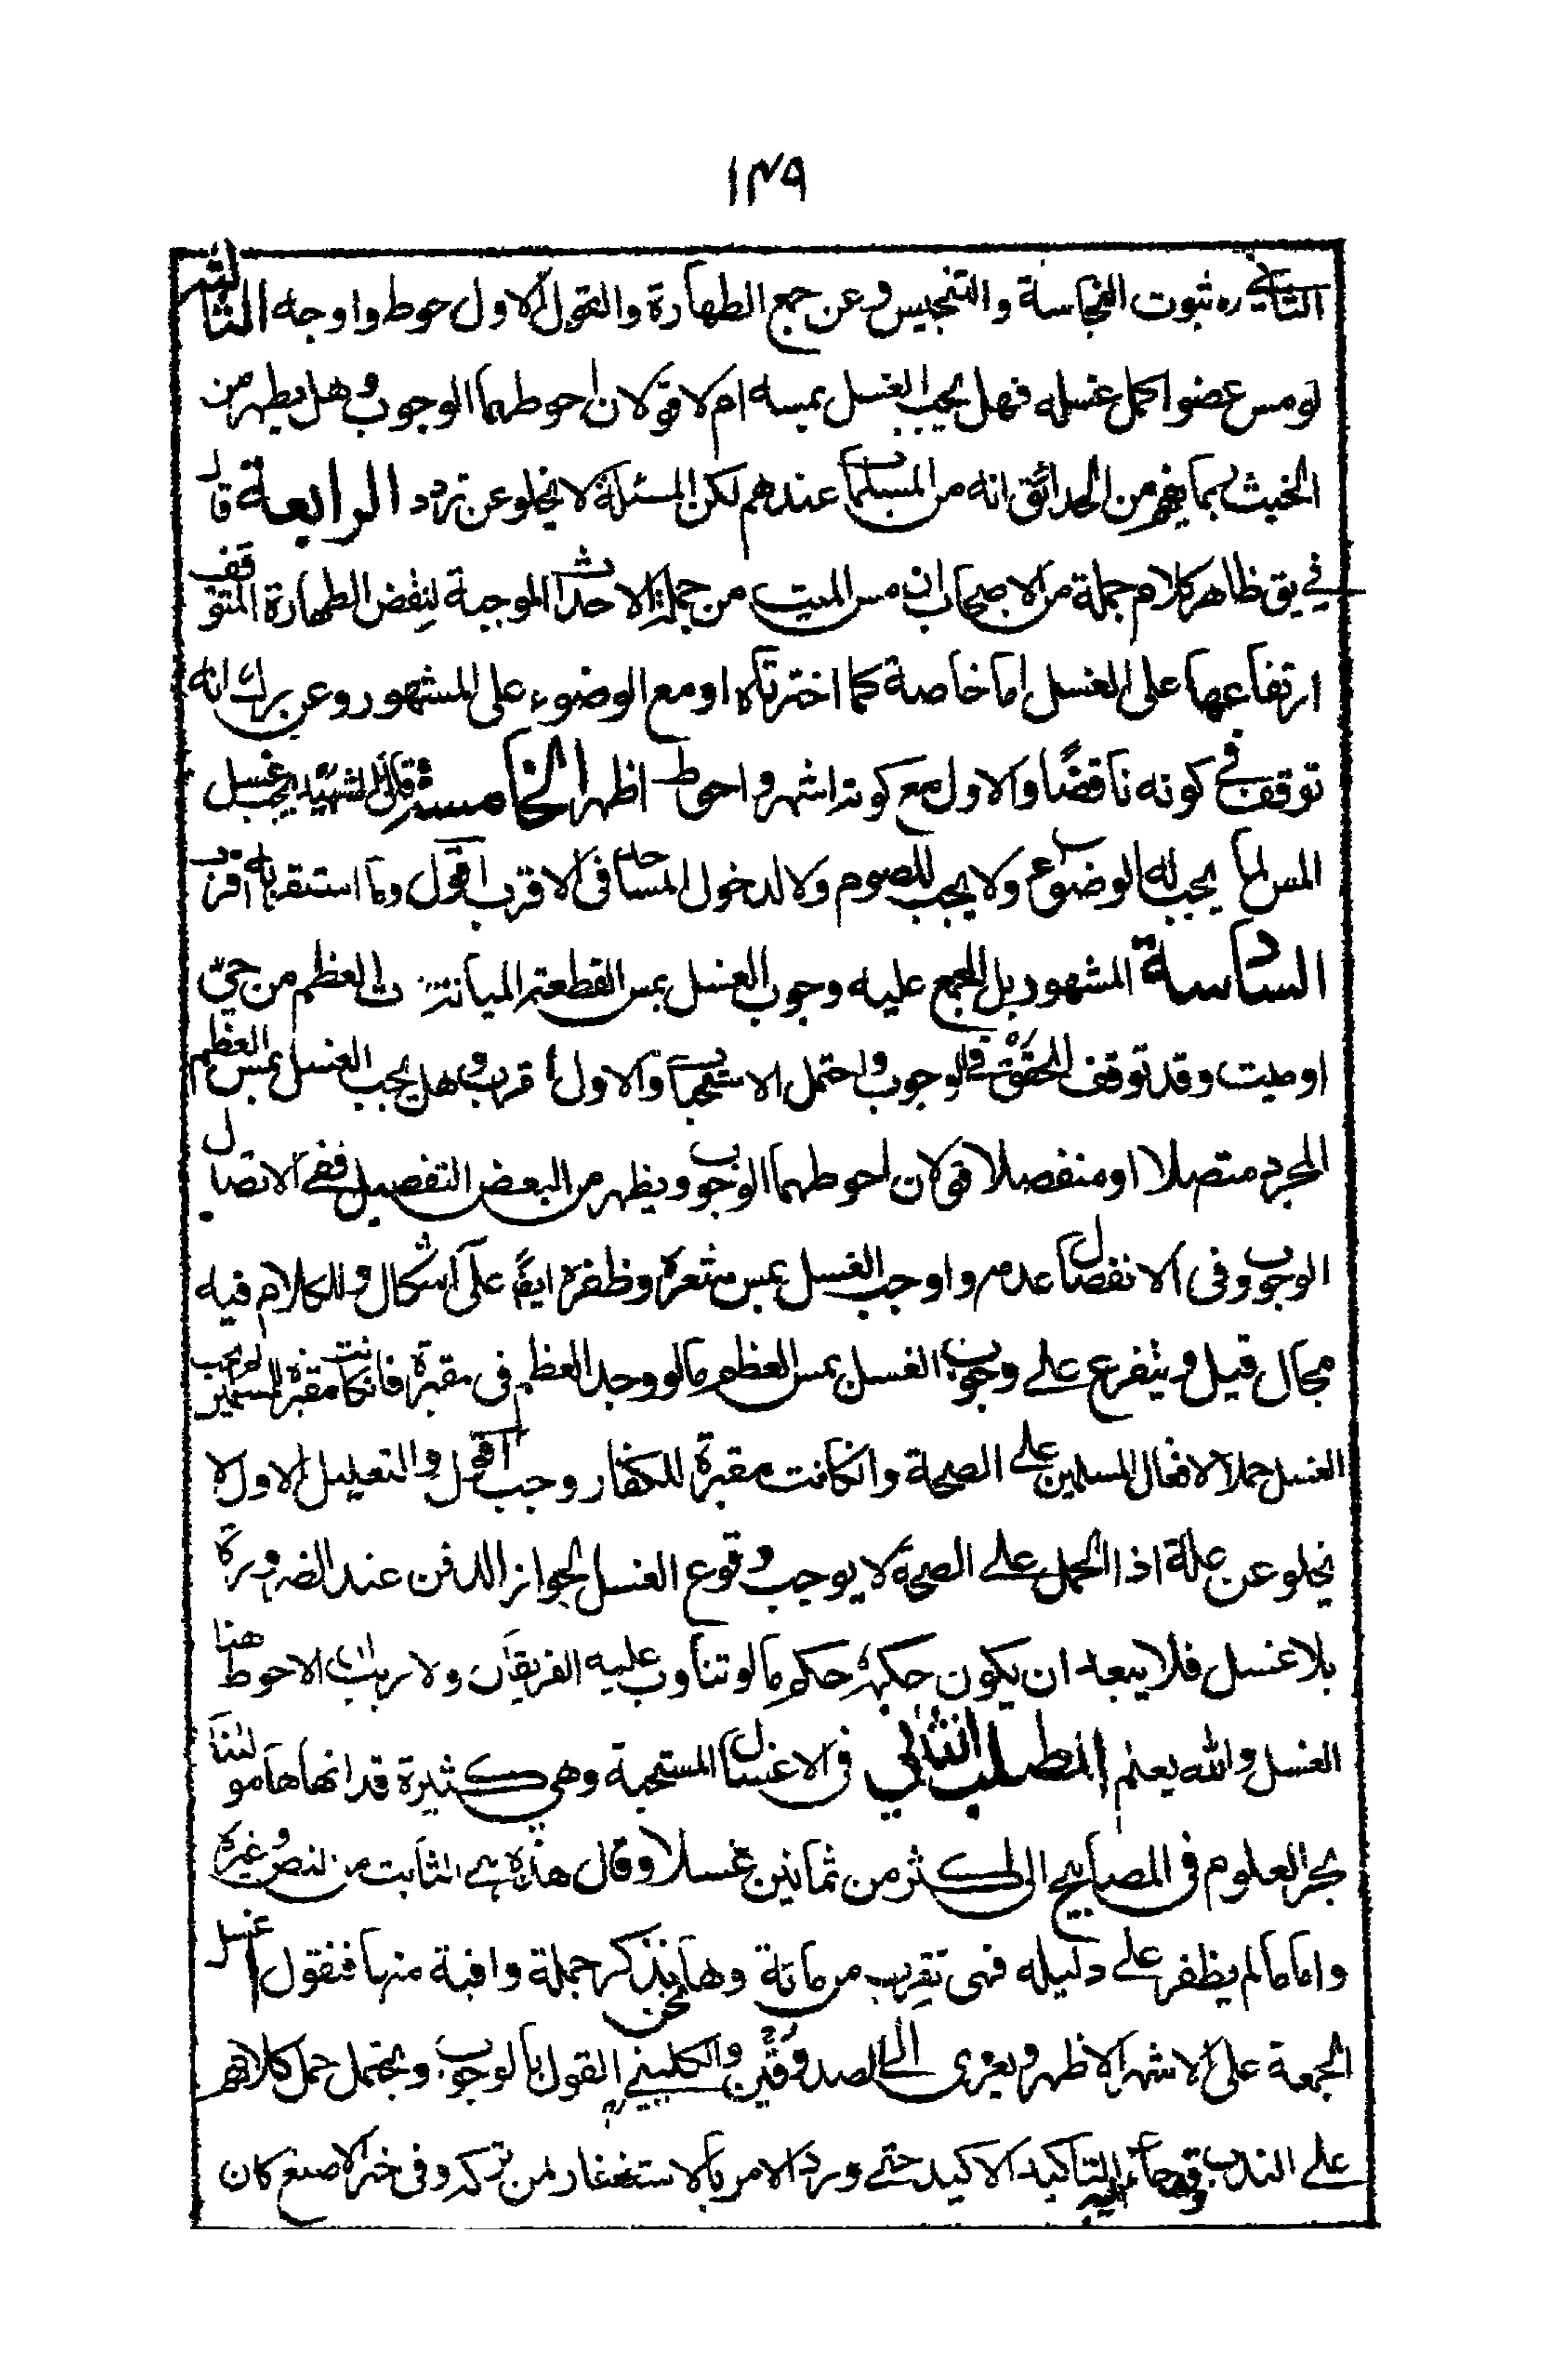 ١٣٩
الثاني ره ثبوت النجاسة والتنجيس وعن جمع الطهارة والقول الاول احوط واوجه الثالثة
لو مس عضوا كمل غسله فهل يجب الغسل بمسه ام لا قولان احوطهما الوجوب وهل يطهر من
الخبث ربما يفهم من الحدائق انه من المسلمات عندهم لكن المسئلة لا يخلو عن تردد الرابعة قال
في يق ظاهر كلام جملة من الاصحاب ان مس الميت من جملة الاحداث الموجبة لنقض الطهارة المتوقف
ارتفاعها على الغسل اما خاصة كما اخترناه او مع الوضوء على المشهور وعن انه
توقف في كونه ناقضًا والاول مع كونه اشهر واحوط اظهر الخامسة قال الشهيد يجب غسل
المس لما يجب له الوضوء ولا يجب للصوم ولا لدخول المساجد في الاقرب اقول وما استقربه اقرب
السادسة المشهور بل المجمع عليه وجوب الغسل بمس القطعة المبانة ذات العظم من حي
او ميت وقد توقف المحقق في الوجوب واحتمل الاستحباب والاول اقرب وهل يجب الغسل بمس العظم
المجرد متصلا او منفصلا قولان احوطهما الوجوب ويظهر من البعض التفصيل ففي الاتصال
الوجوب وفي الانفصال عدمه واوجب الغسل بمس شعره وظفره ايضًا على اشكال وللكلام فيه
مجال قيل ويتفرع على وجوب الغسل بمس العظم ما لو وجد العظم في مقبرة فان كانت مقبرة المسلمين لم يجب
الغسل حملا لافعال المسلمين على الصحة وانكانت مقبرة للكفار وجب اقول والتعليل الاول لا
يخلو عن علة اذ الحمل على الصحة لا يوجب وقوع الغسل لجواز الدفن عند الضرورة
بلا غسل فلا يبعد ان يكون حكمه حكم ما لو تناوب عليه الفريقان ولا ريب ان الاحوط هنا
الغسل والله يعلم المطلب الثاني في الاغسال المستحبة وهي كثيرة قد انهاها مولانا
بحر العلوم في المصابيح الى اكثر من ثمانين غسلا وقال هذه هي الثابت من النص وغيره
واما ما لم يظفر على دليله فهي تقرب من مائة وها نحن نذكر جملة وافية منها فنقول غسل
الجمعة على الاشهر الاظهر ويعزى الى الصدوقين والكليني ره القول بالوجوب ويحتمل حمل كلامهم
على الندب وقد جاء التاكيد الاكيد حتى ورد الامر بالاستغفار لمن تركه وفي خبر الاصبغ كان